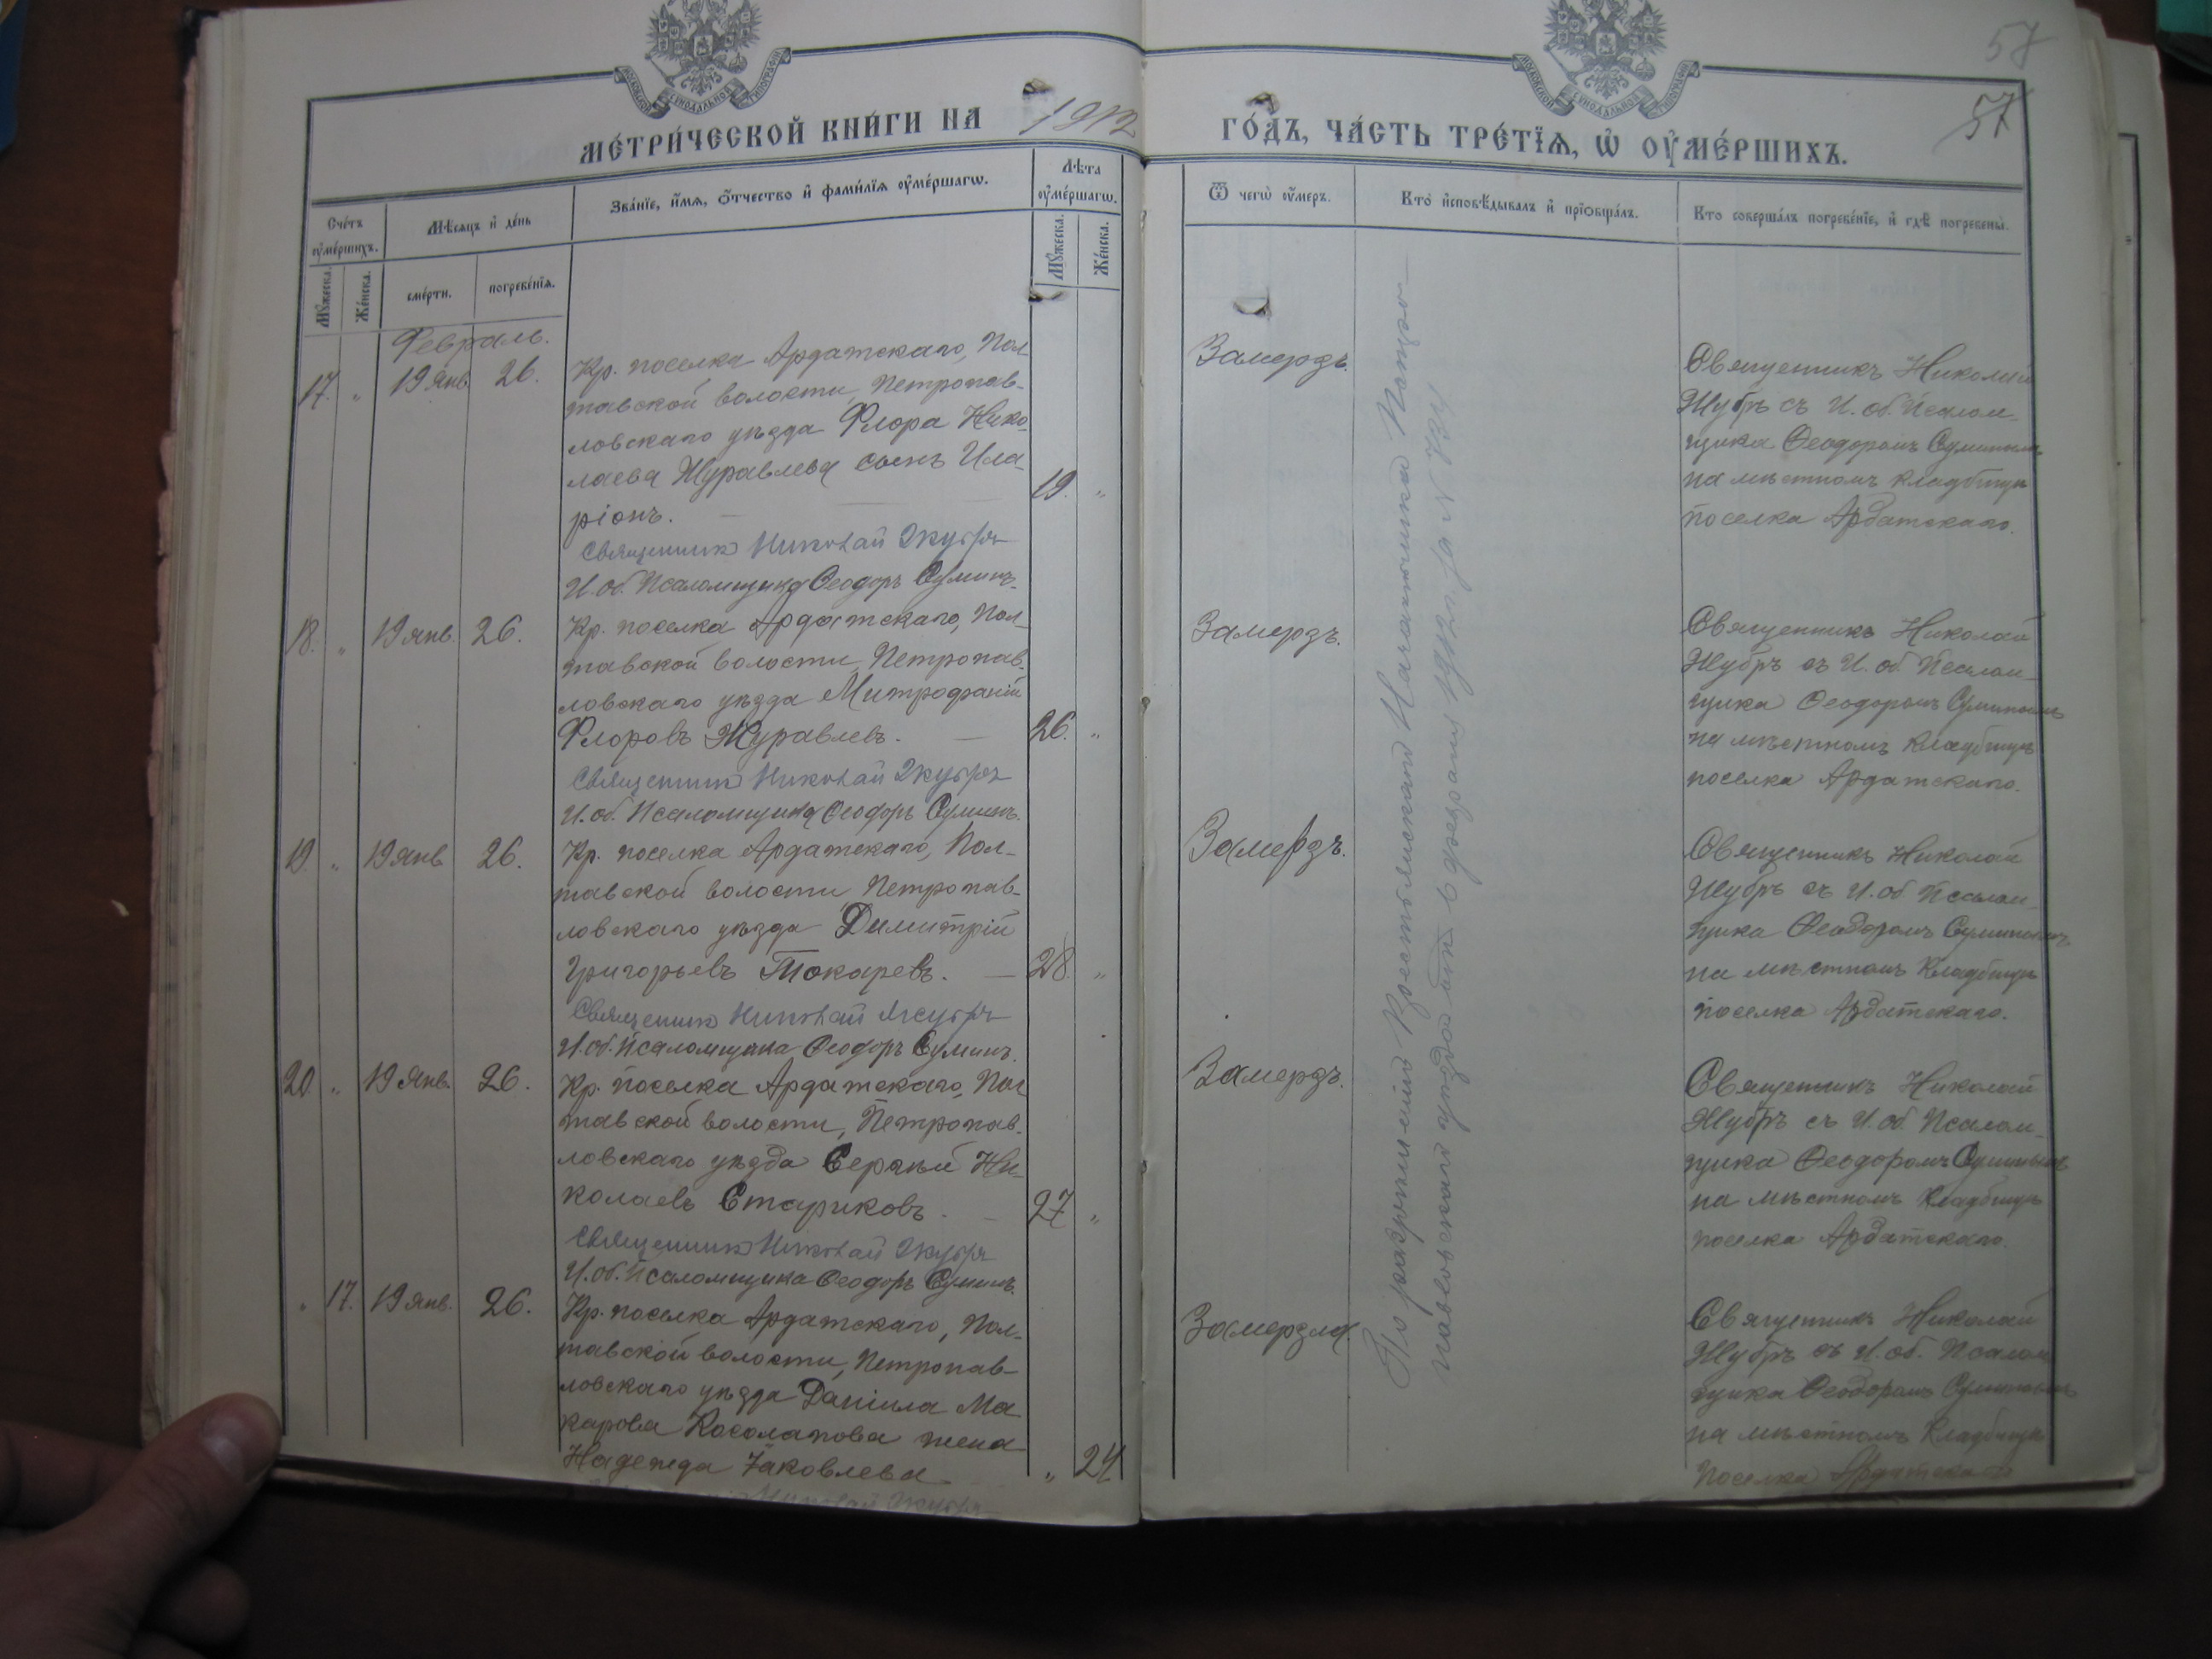 57
57
МОСКОВСКОЙ СѴНОДАЛЬНОЙ ТИПОГРАФІИ
МОСКОВСКОЙ СѴНОДАЛЬНОЙ ТИПОГРАФІИ
МЕ́ТРИ́ЧЕСКОЙ КНИ́ГИ НА 1912 ГО́ДЪ, ЧА́СТЬ ТРЕ́ТЇѦ, Ѡ҆ ОУ҆МЕ́РШИХЪ.
Сче́тъ оу҆ме́ршихъ.
Мꙋ́жеска.
Же́нска.
Мѣ́сѧцъ и҆ де́нь
сме́рти.
погребе́нїѧ.
Зва́нїе, и҆́мѧ, ѻ҆́тчество и҆ фами́лїѧ оу҆ме́ршагѡ.
Лѣ́та оу҆ме́ршагѡ.
Мꙋ́жеска.
Же́нска.
Ѿ чегѡ̀ оу҆́меръ.
Кто̀ и҆сповѣ́дывалъ и҆ прїѻбща́лъ.
Кто соверша́лъ погребе́нїе, и҆ гдѣ̀ погребены̀.
Февраль.
17. " 19 янв. 26.
Кр. поселка Ардатскаго, Пол-
тавской волости, Петропав-
ловскаго уѣзда Флора Нико-
лаева Журавлева сынъ Ила-
ріонъ.
19. "
Священник Николай Жубръ
И. об. Псаломщика Ѳеодоръ Суминъ.
Замерзъ.
Священникъ Николай
Жубръ съ И. об. Псалом-
щика Ѳеодоромъ Суминымъ
на мѣстномъ кладбищѣ
поселка Ардатскаго.
18. " 19 янв. 26.
Кр. поселка Ардатскаго, Пол-
тавской волости, Петропав-
ловскаго уѣзда Митрофаній
Флоровъ Журавлевъ.
26. "
Священник Николай Жубръ
И. об. Псаломщика Ѳеодоръ Суминъ.
Замерзъ.
Священникъ Николай
Жубръ съ И. об. Псалом-
щика Ѳеодоромъ Суминымъ
на мѣстномъ кладбищѣ
поселка Ардатскаго.
19. " 19 янв. 26.
Кр. поселка Ардатскаго, Пол-
тавской волости, Петропав-
ловскаго уѣзда Димитрій
Григорьевъ Токаревъ.
28. "
Священник Николай Жубръ
И. об. Псаломщика Ѳеодоръ Суминъ.
Замерзъ.
Священникъ Николай
Жубръ съ И. об. Псалом-
щика Ѳеодоромъ Суминымъ
на мѣстномъ кладбищѣ
поселка Ардатскаго.
20. " 19 янв. 26.
Кр. поселка Ардатскаго, Пол-
тавской волости, Петропав-
ловскаго уѣзда Сергѣй Ни-
колаевъ Стариковъ.
27 "
Священник Николай Жубръ
И. об. Псаломщика Ѳеодоръ Суминъ.
Замерзъ.
Священникъ Николай
Жубръ съ И. об. Псалом-
щика Ѳеодоромъ Суминымъ
на мѣстномъ кладбищѣ
поселка Ардатскаго.
" 17. 19 янв. 26.
Кр. поселка Ардатскаго, Пол-
тавской волости, Петропав-
ловскаго уѣзда Даніила Ма-
карова Косолапова жена
Надежда Яковлева
" 24
Николай Жубръ
Замерзла.
Священникъ Николай
Жубръ съ И. об. Псалом-
щика Ѳеодоромъ Суминымъ
на мѣстномъ кладбищѣ
поселка Ардатскаго
По разрѣшенію Крестьянскаго Начальника Петро-
павловскаго уѣзда отъ 6 февраля 1912 г. за №